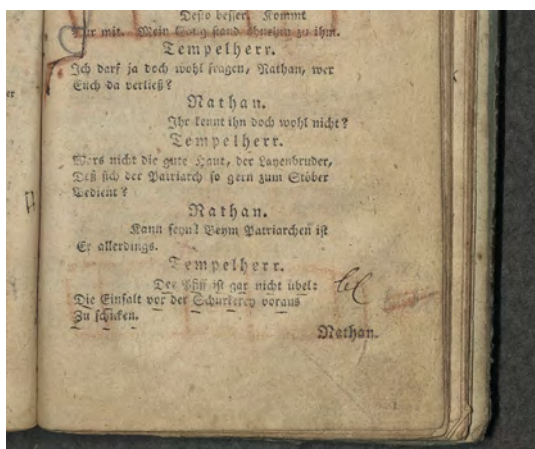 Desto besser. Kommt
Nur mit. Mein Weg ſtand ohnehin zu ihm.
Tempelherr.
Ich darf ja doch wohl fragen, Nathan, wer
Euch da verließ?
Nathan.
Ihr kennt ihn doch wohl nicht?
Tempelherr.
Wars nicht die gute Haut, der Layenbruder,
Deß ſich der Patriarch ſo gern zum Stöber
Bedient?
Nathan.
Kann ſeyn! Beym Patriarchen iſt
Er allerdings.
Tempelherr.
Der Pfiff iſt gar nicht übel:
Die Einfalt vor der Schurkerey voraus
Zu ſchicken.
Nathan.